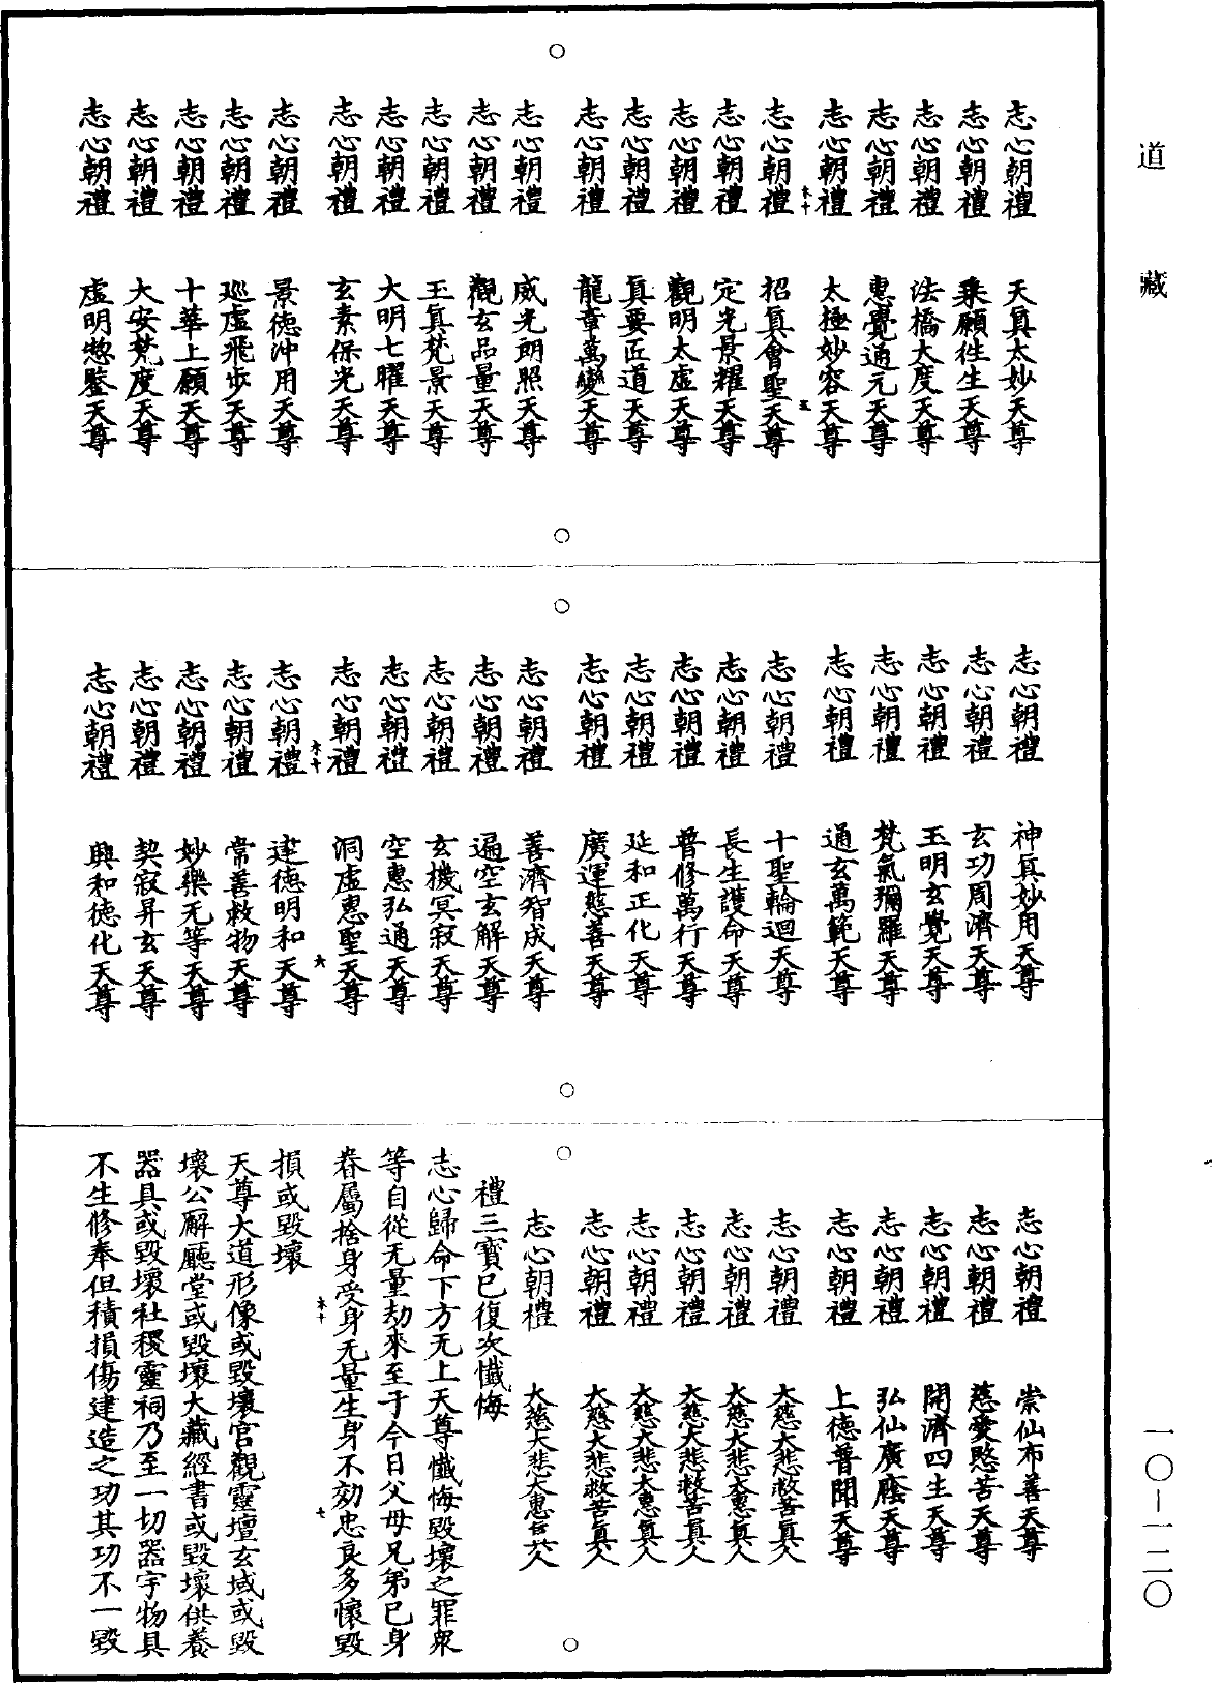 道藏
志心朝禮　天真太妙天尊
志心朝禮　乘願往生天尊
志心朝禮　法橋大度天尊
志心朝禮　惠覺通元天尊
志心朝禮　太極妙容天尊
本十　五
志心朝禮　招真會聖天尊
志心朝禮　定光景耀天尊
志心朝禮　觀明太虛天尊
志心朝禮　真要匠道天尊
志心朝禮　龍章萬變天尊
志心朝禮　威光朗照天尊
志心朝禮　觀玄品量天尊
志心朝禮　王真梵景天尊
志心朝禮　大明七曜天尊
志心朝禮　玄素保光天尊
志心朝禮　景德沖用天尊
志心朝禮　巡虛飛步天尊
志心朝禮　十華上願天尊
志心朝禮　大安梵度天尊
志心朝禮　虛明愸鑒天尊
志心朝禮　神真妙用天尊
志心朝禮　玄功周濟天尊
志心朝禮　玉明玄覺天尊
志心朝禮　梵氣彌羅天尊
志心朝禮　通玄萬範天尊
志心朝禮　十聖輪迴天尊
志心朝禮　長生護命天尊
志心朝禮　普修萬行天尊
志心朝禮　延和正化天尊
志心朝禮　廣運慈善天尊
志心朝禮　善濟智成天尊
志心朝禮　遍空玄解天尊
志心朝禮　玄機冥寂天尊
志心朝禮　空惠弘通天尊
志心朝禮　洞虛惠聖天尊
本十　六
志心朝禮　建德明和天尊
志心朝禮　常善救物天尊
志心朝禮　妙樂无等天尊
志心朝禮　契寂昇玄天尊
志心朝禮　興和德化天尊
志心朝禮　崇仙布善天尊
志心朝禮　慈愛愍苦天尊
志心朝禮　開濟四生天尊
志心朝禮　弘仙廣廕天尊
志心朝禮　上德普聞天尊
志心朝禮　大慈大悲救苦真人
志心朝禮　大慈大悲大惠真人
志心朝禮　大慈大悲救苦真人
志心朝禮　大慈大悲大惠真人
志心朝禮　大慈大悲救苦真人
志心朝禮　大慈大悲大惠真人
禮三寶已復次懺悔
志心歸命下方无上天尊懺悔毀壞之罪眾
等自從无量劫來至于今日父母兄弟已身
眷屬捨身受身无量生身不効忠良多懷毀
本十　七
損或毀壞
天尊大道形像或毀壞官觀靈壇玄域或毀
壞公廨廳堂或毀壞大藏經書或毀壞供養
器具或毀壞社稷靈祠乃至一切器宇物具
不生修奉但積損傷建造之功其功不一毀
一〇－一二〇